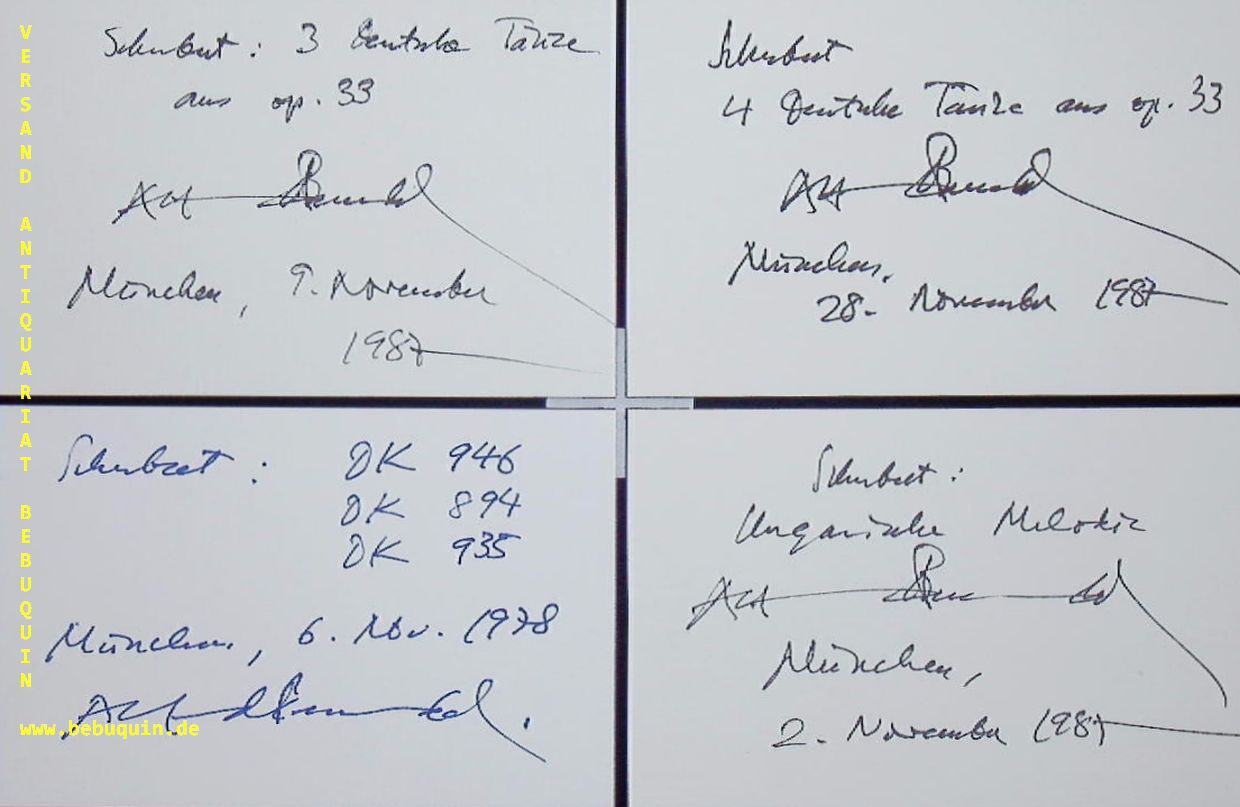 Schubert: 3 Deutsche Tänze
aus op. 33
München, 9. November
1987
Schubert
4 Deutsche Tänze aus op. 33
München,
28. November 1987
Schubert: DK 946
DK 894
DK 935
München, 6. Nov. 1978
Schubert:
Ungarische Melodie
München,
2. November 1987
VERSAND ANTIQUARIAT BEBUQUIN
www.bebuquin.de